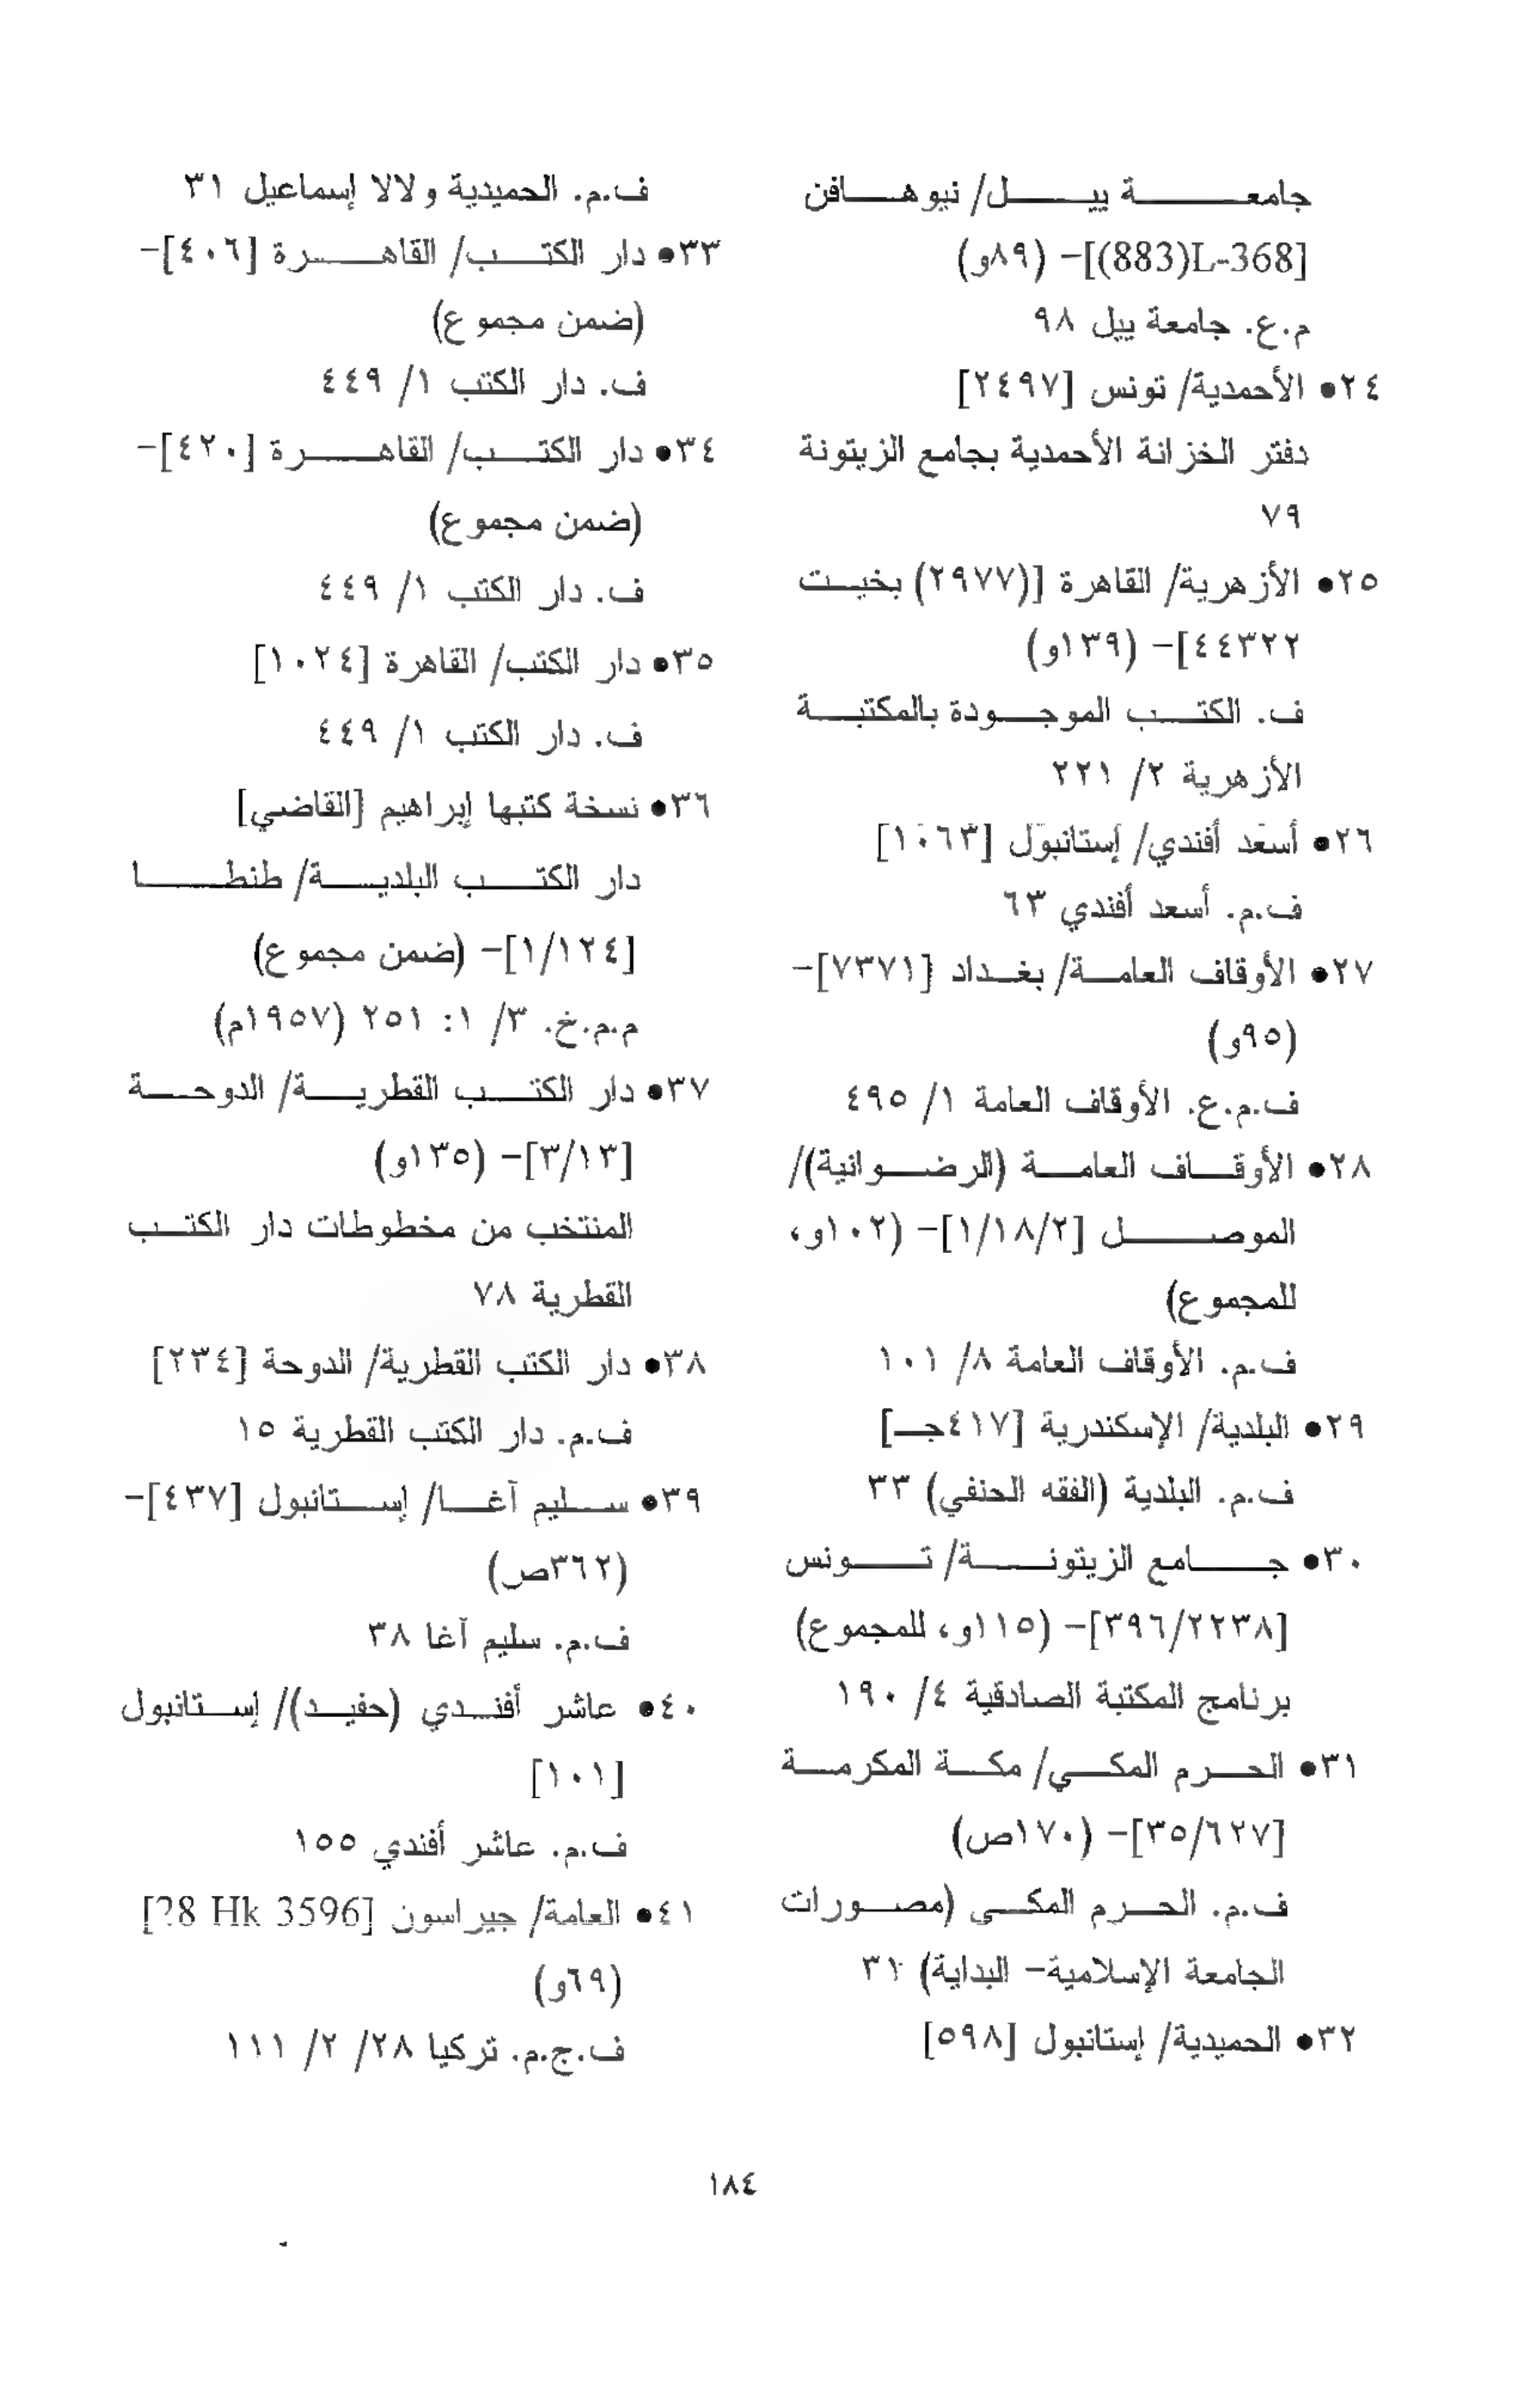 جامعة ييل/ نيوهافن
[(883)L-368]- (٨٩و)
م.ع. جامعة ييل ٩٨
٢٤● الأحمدية/ تونس [٢٤٩٧]
دفتر الخزانة الأحمدية بجامع الزيتونة
٧٩
٢٥● الأزهرية/ القاهرة [(٢٩٧٧) بخيت
٤٤٣٢٢]- (١٣٩و)
ف. الكتب الموجودة بالمكتبة
الأزهرية ٢/ ٢٢١
٢٦● أسعد أفندي/ إستانبول [١٠٦٣]
ف.م. أسعد أفندي ٦٣
٢٧● الأوقاف العامة/ بغداد [٧٣٧١]-
(٩٥و)
ف.م.ع. الأوقاف العامة ١/ ٤٩٥
٢٨● الأوقاف العامة (الرضوانية)/
الموصل [١/١٨/٢]- (١٠٢و،
للمجموع)
ف.م. الأوقاف العامة ٨/ ١٠١
٢٩● البلدية/ الإسكندرية [٤١٧جـ]
ف.م. البلدية (الفقه الحنفي) ٣٣
٣٠● جامع الزيتونة/ تونس
[٣٩٦/٢٢٣٨]- (١١٥و، للمجموع)
برنامج المكتبة الصادقية ٤/ ١٩٠
٣١● الحرم المكي/ مكة المكرمة
[٣٥/٦٢٧]- (١٧٠ص)
ف.م. الحرم المكي (مصورات
الجامعة الإسلامية- البداية) ٣١
٣٢● الحميدية/ إستانبول [٥٩٨]
ف.م. الحميدية ولالا إسماعيل ٣١
٣٣● دار الكتب/ القاهرة [٤٠٦]-
(ضمن مجموع)
ف. دار الكتب ١/ ٤٤٩
٣٤● دار الكتب/ القاهرة [٤٢٠]-
(ضمن مجموع)
ف. دار الكتب ١/ ٤٤٩
٣٥● دار الكتب/ القاهرة [١٠٢٤]
ف. دار الكتب ١/ ٤٤٩
٣٦● نسخة كتبها إبراهيم [القاضي]
دار الكتب البلدية/ طنطا
[١/١٢٤]- (ضمن مجموع)
م.م.خ. ٣/ ١: ٢٥١ (١٩٥٧م)
٣٧● دار الكتب القطرية/ الدوحة
[٣/١٣]- (١٣٥و)
المنتخب من مخطوطات دار الكتب
القطرية ٧٨
٣٨● دار الكتب القطرية/ الدوحة [٢٣٤]
ف.م. دار الكتب القطرية ١٥
٣٩● سليم آغا/ إستانبول [٤٣٧]-
(٣٦٢ص)
ف.م. سليم آغا ٣٨
٤٠● عاشر أفندي (حفيد)/ إستانبول
[١٠١]
ف.م. عاشر أفندي ١٥٥
٤١● العامة/ جيراسون [28 Hk 3596]
(٦٩و)
ف.ج.م. تركيا ٢٨/ ٢/ ١١١
١٨٤